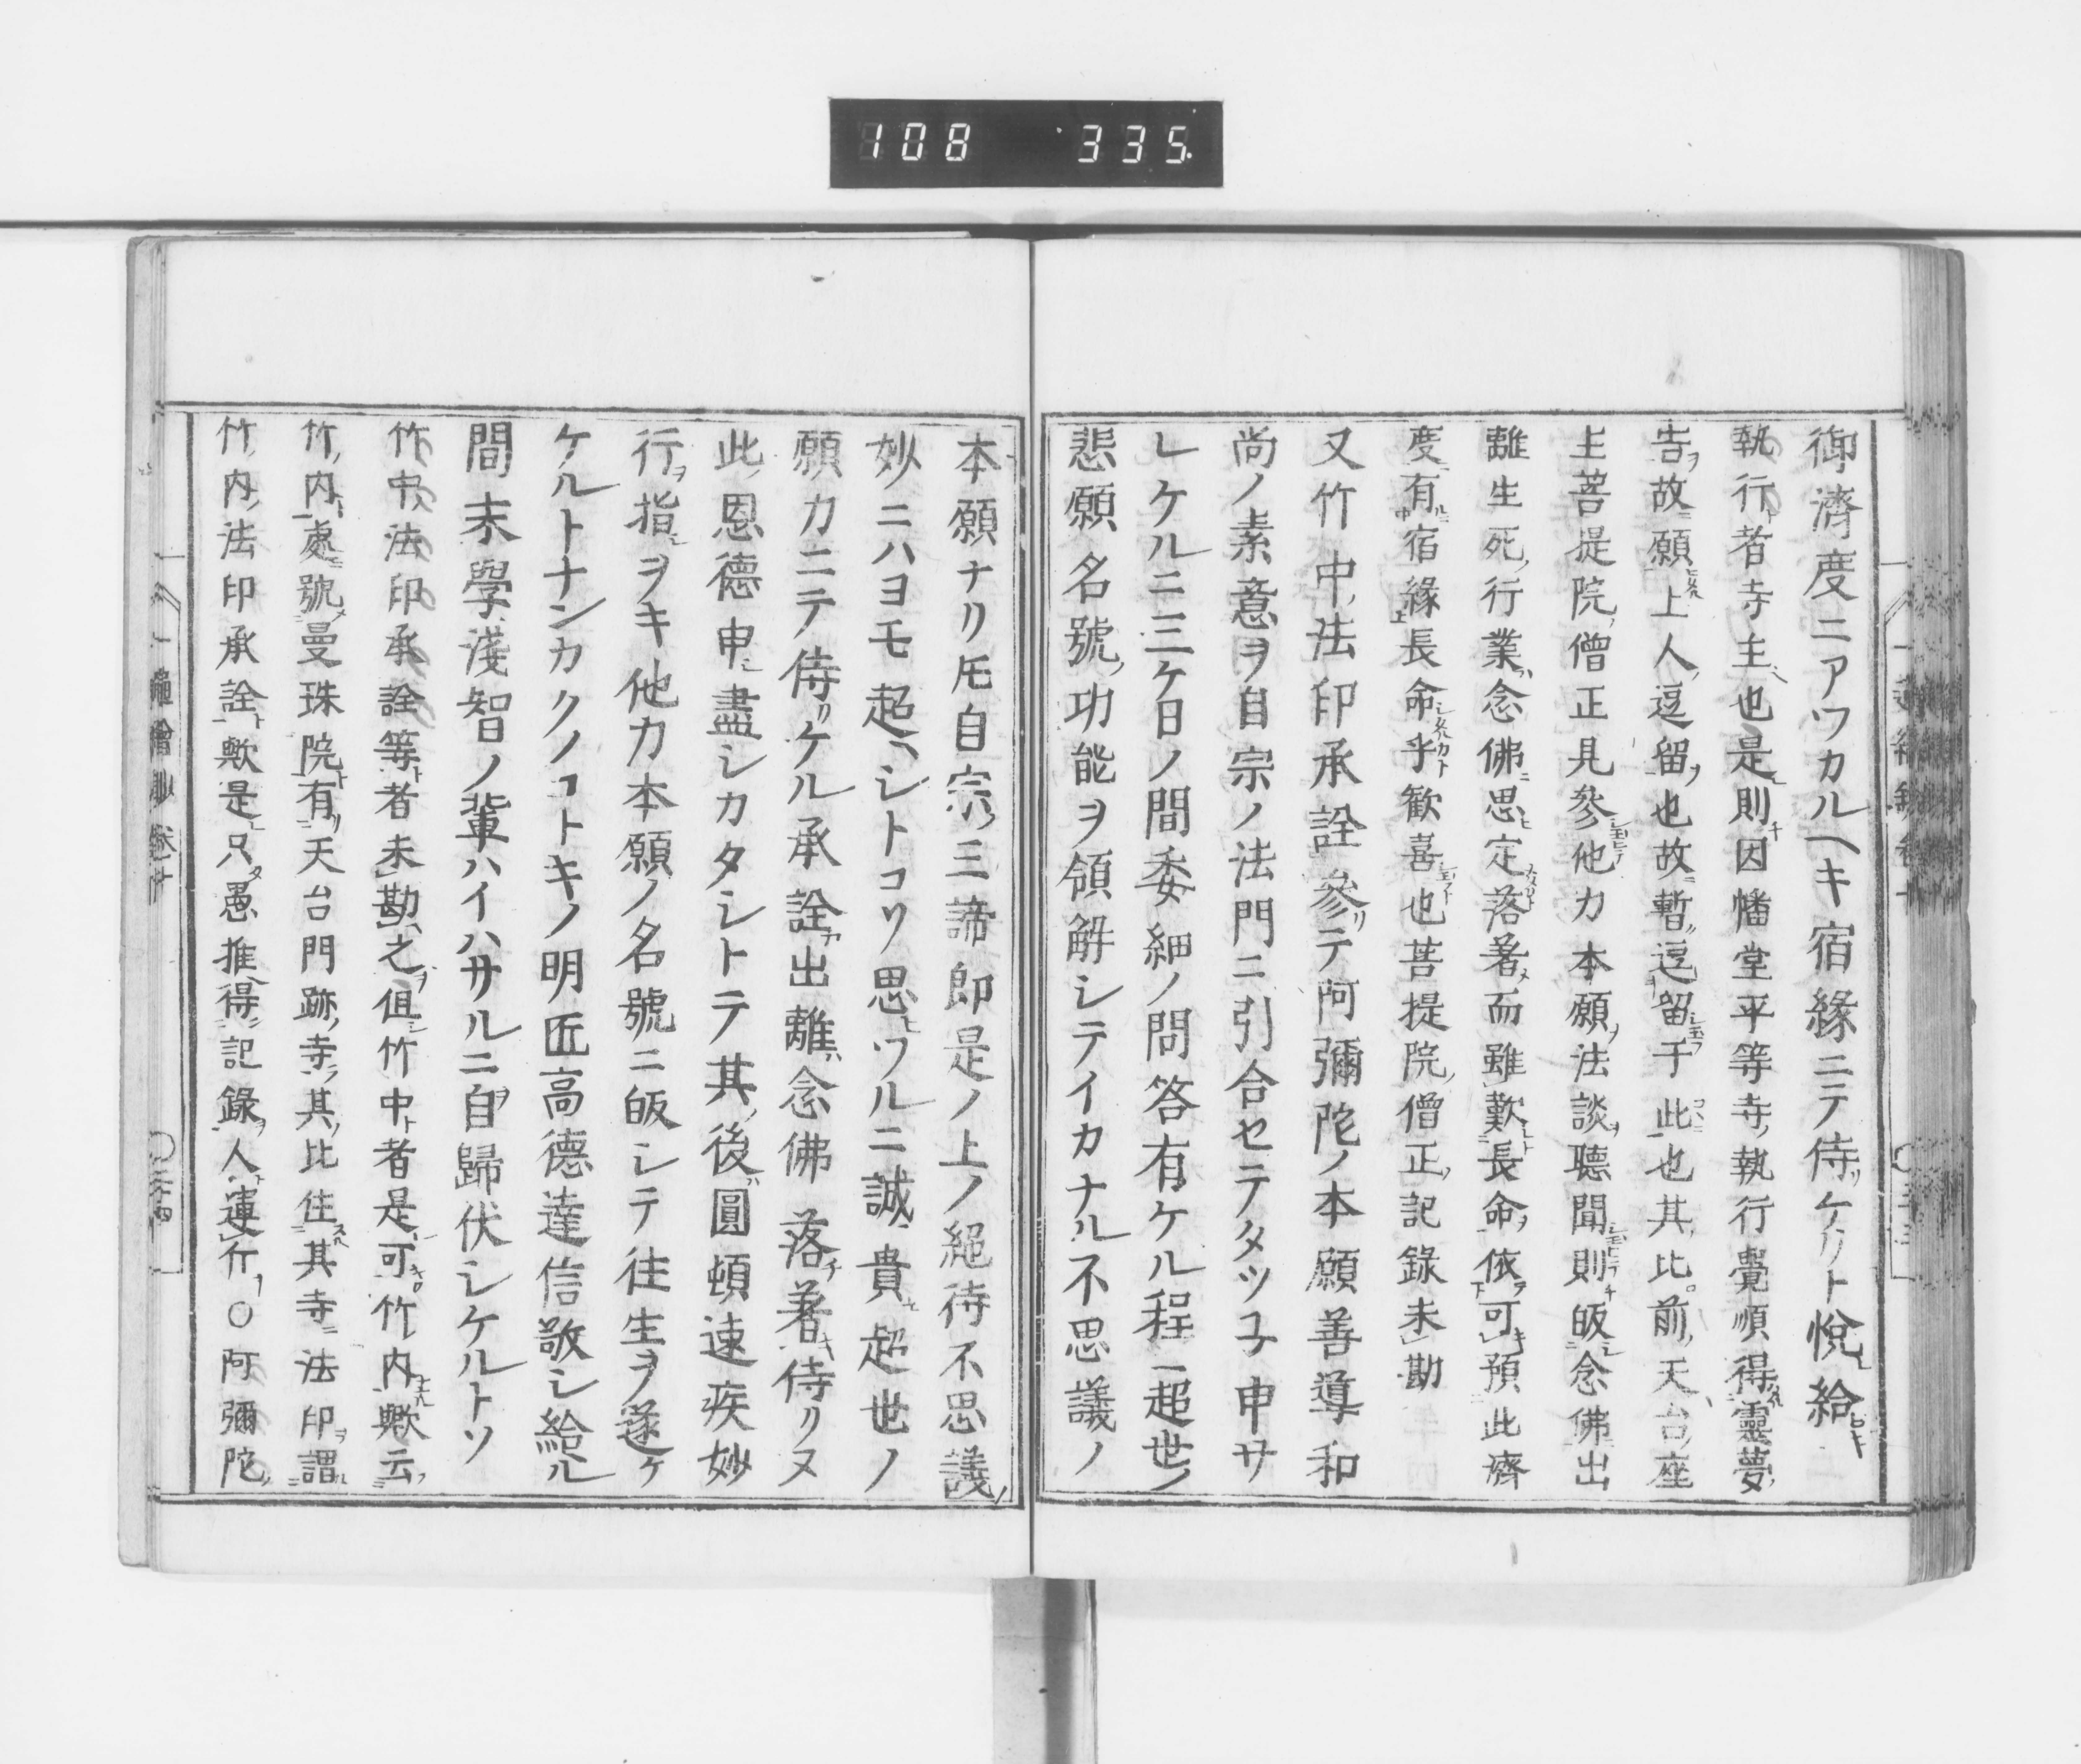 108 335
御濟度ニアワカルヘキ宿緣ニテ侍リケリト悅ヒ給
執行者寺主也是則因幡堂平等寺執行覺順得靈夢
告故願上人逗留也故暫逗留于此也其比前天台座
主菩提院僧正見參他力本願法談聽聞則皈念佛出
離生死行業念佛思定落著而雖歎長命依可預此濟
度有宿緣長命乎歡喜也菩提院僧正記錄未勘
又竹中法印承詮參リテ阿彌陀ノ本願善導和
尚ノ素意ヲ自宗ノ法門ニ引合セテタツ子申サ
レケルニ三ケ日ノ間委細ノ問答有ケル程ニ超世ノ
悲願名號ノ功能ヲ領解シテイカナル不思議ノ
本願ナリ𪜈自宗ノ三諦即是ノ上ノ絕待不思議ノ
妙ニハヨモ超ヘシトコソ思ヒツルニ誠ニ貴ヒ超世ノ
願力ニテ侍リケル承詮カ出離ハ念佛ニ落チ著キ侍リヌ
此恩德申シ盡シカタシトテ其ノ後ハ圓頓速疾妙
行ヲ指シヲキ他力本願ノ名號ニ皈シテ往生ヲ遂ケ
ケルトナンカクノコトキノ明匠高德達信敬シ給ル
間末學淺智ノ輩ハイハサルニ自ヲ歸伏シケルトソ
竹中法印承詮等者未勘之但竹中者是可竹内歟云
竹内處號曼珠院有天台門跡寺其比住其寺法印謂
竹内法印承詮歟是只愚推得記錄人運仚○阿彌陀